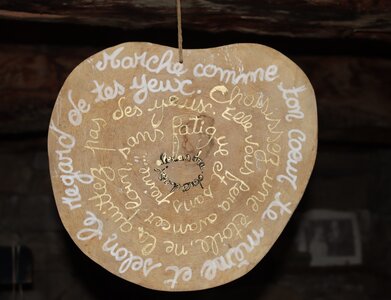 Marche comme ton cœur te mène et selon le regard de tes yeux.
Choisissez une étoile, ne la quittez pas des yeux. Elle vous fera avancer loin sans fatigue et sans peine